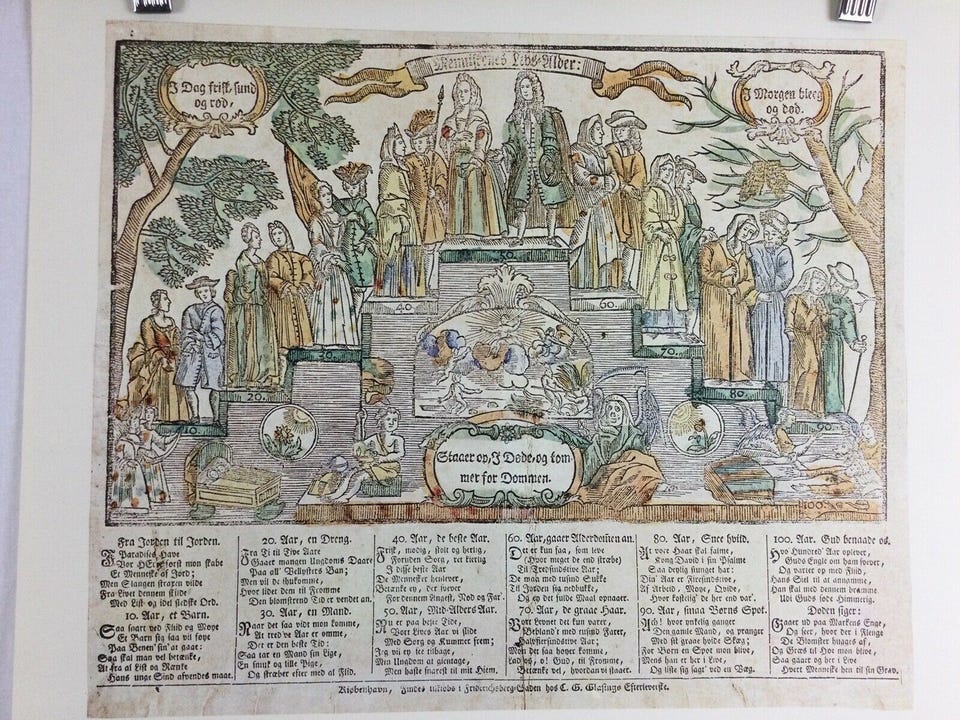 Menniskenes Lebs-Alder:
I Dag frisk, sund
og rød,
I Morgen bleeg
og død.
10.
20.
30.
40.
50.
60.
70.
80.
90.
100.
Staaer op, I Døde, og kom-
mer for Dommen.
Fra Jorden til Jorden.
I Paradises Have
Vor HErre først mon skabe
Et Menneske af Jord;
Men Slangen straxen vilde
Fra Livet dennem skilde
Med List og idel
10. Aar, et Barn.
Saa snart ved Fliid og Møye
Et Barn sig saa vil føye
Paa Benen' sin' at gaae:
Saa skal man vel betænke,
At fra al List og Rænke
Hans unge Sind afvendes maae.
20. Aar, en Dreng.
Fra Ti til Tive Aare
Gaaer mangen Ungdoms Daare
Paa all' Vellysters Ban;
Men vil de ihukomme,
Hvor lidet dem til Fromme
Den blomstrend Tid er vendet an.
30. Aar, en Mand.
Naar det saa vidt mon komme,
At tredve Aar er omme,
Det er den beste Tid:
Saa tar en Mand sin Lige,
En smuk og lille Pige,
Og stræber efter med al Fliid.
40. Aar, de beste Aar.
Frisk, modig, stolt og herlig,
Foruden Sorg, ret kierlig
I disse beste Aar
De Mennesker henlever,
Betænke ey, der svæver
For dennem Angest, Nød og Far'.
50. Aar, Mid-Alders Aar.
Nu er paa beste Tide,
Vort Livs Aar vil slide
Med Sorg og Kummer frem;
Jeg vil ey see tilbage,
Min Ungdom at gientage,
Men haste snarest til mit Hiem.
60. Aar, gaaer Alderdommen an.
Det er kun saa, som leve
(Hvor meget de end stræbe)
Til Tresindstive Aar;
De maa med tusind Sukke
Til Jorden sig nedbukke,
Og et og fulde Maal opnaaer.
70. Aar, de graae Haar.
Vort Levnet det kun varer,
Iblandt med tusind Farer,
Halvfierdsindstive Aar;
Men det saa høyer komme,
Lad os, o! Gud, til Fromme,
Betænke vel, hvordan vi staaer.
80. Aar, Snee hviid.
At vore Haar skal falme,
Kong David i sin Psalme
Saa deylig siunget har;
Din' Aar er Firesindstive,
Af Arbeid, Møye, Qvide,
Hvor kostelig' de hend var'.
90. Aar, smaa Børns Spot.
Ach! hvor ynkelig ganger
Den gamle Mand, og pranger
Med sit graae hvide Skæg;
For Børn en Spot mon blive,
Mens han er her i Live,
Og lisse sig sagt' ved en Væg.
100. Aar, Gud benaade os.
Hvo Hundred' Aar oplever,
Guds Engle om ham svæver,
Og varter op med Fliid,
Hans Siel til at annamme,
Han skal med dennem bramme.
Udi Guds søde Himmerig.
Døden siger:
Gaaer ud paa Markens Enge,
Og seer, hvor der i Flenge
De Blomster hugges af;
Og Græs til Høe mon blive,
Saa gaaer og her i Live
Hvert Menneske hen til sin Grav.
Kiøbenhavn, findes tilkiøbs i Friderichsberg-Gaden hos C. G. Glasings Efterleverske.